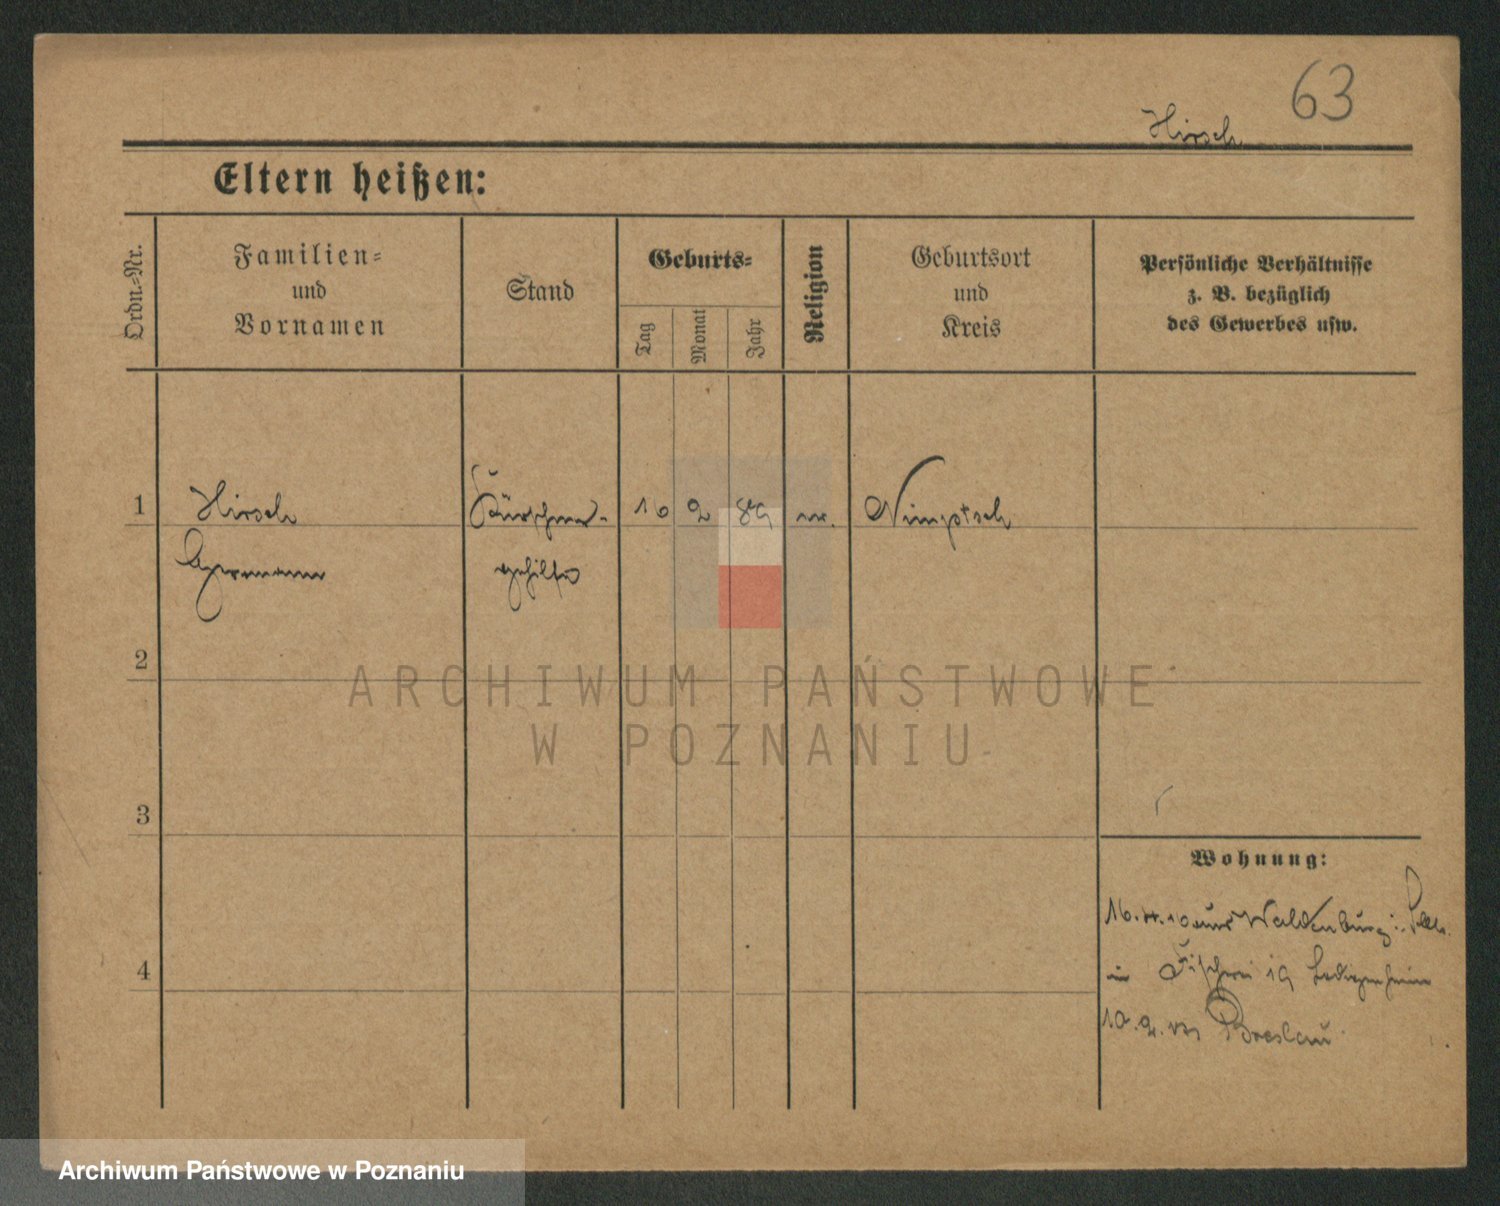 63
Hirsch
Eltern heißen:
Ordn.-Nr.
Familien=
und
Vornamen
Stand
Geburts=
Tag
Monat
Jahr
Religion
Geburtsort
und
Kreis
Persönliche Verhältnisse
z. B. bezüglich
des Gewerbes usw.
1
Hirsch
Hermann
Kürschner-
gehilfe
16
2
89
Nimptsch
2
3
4
Wohnung:
16. Waldenburg
in Fischerei 19 Ledigenheim
10. 2. Breslau
ARCHIWUM PAŃSTWOWE
W POZNANIU
Archiwum Państwowe w Poznaniu